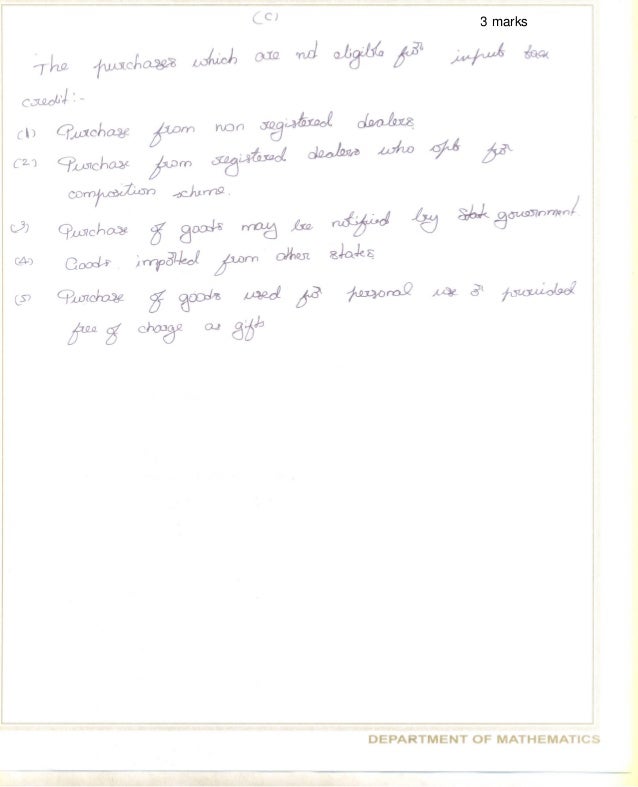 (C)
3 marks
The purchases which are not eligible for input tax
credit:-
(1) Purchase from non registered dealers
(2) Purchase from registered dealers who opts for
composition scheme.
(3) Purchase of goods may be notified by State government.
(4) Goods imported from other states
(5) Purchase of goods used for personal use or provided
free of charge as gifts
DEPARTMENT OF MATHEMATICS